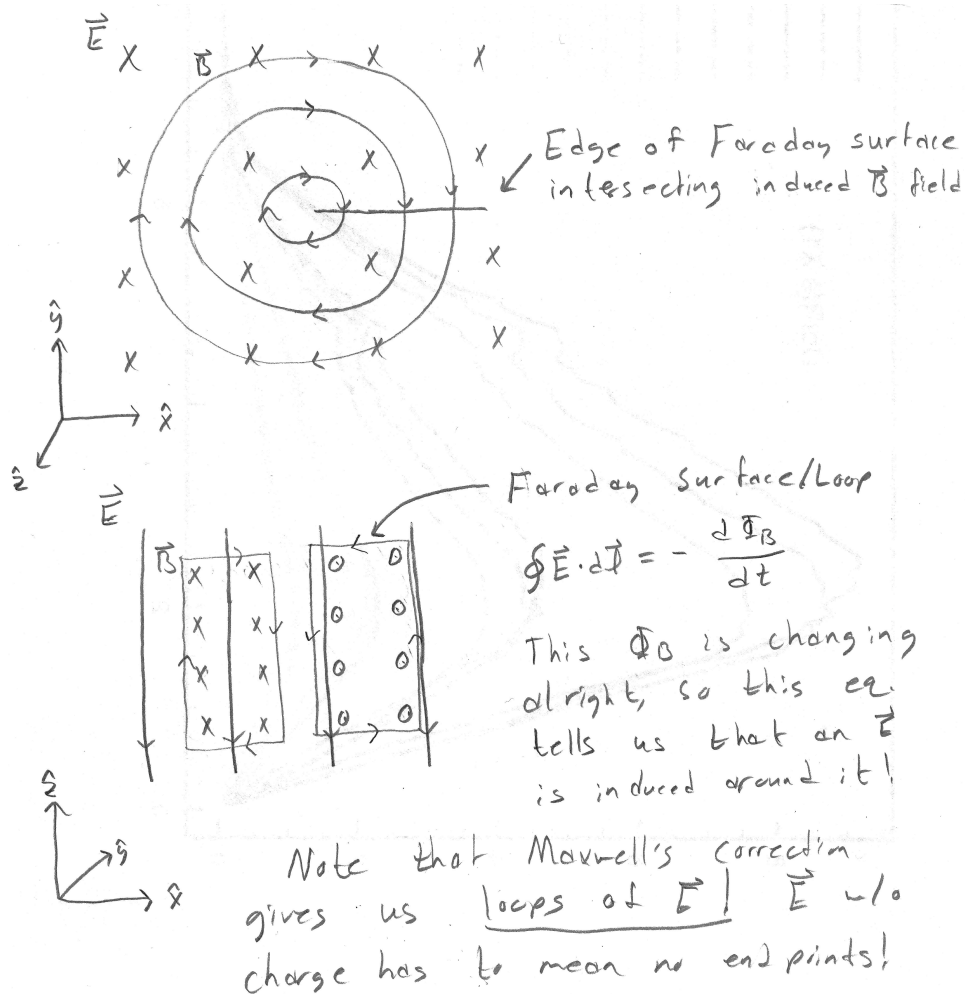 E⃗
X X X X
B⃗
X X X X
Edge of Faraday surface
intersecting induced B⃗ field
X X X X
X X X X
ŷ
x̂
ẑ
E⃗
Faraday Surface/Loop
B⃗
X X O O
X X O O
X X O O
X X O O
∮E⃗·dl⃗ = - dΦB/dt
This ΦB is changing
alright, so this eq.
tells us that an E⃗
is induced around it!
ẑ
ŷ
x̂
Note that Maxwell's correction
gives us loops of E⃗! E⃗ w/o
charge has to mean no endpoints!